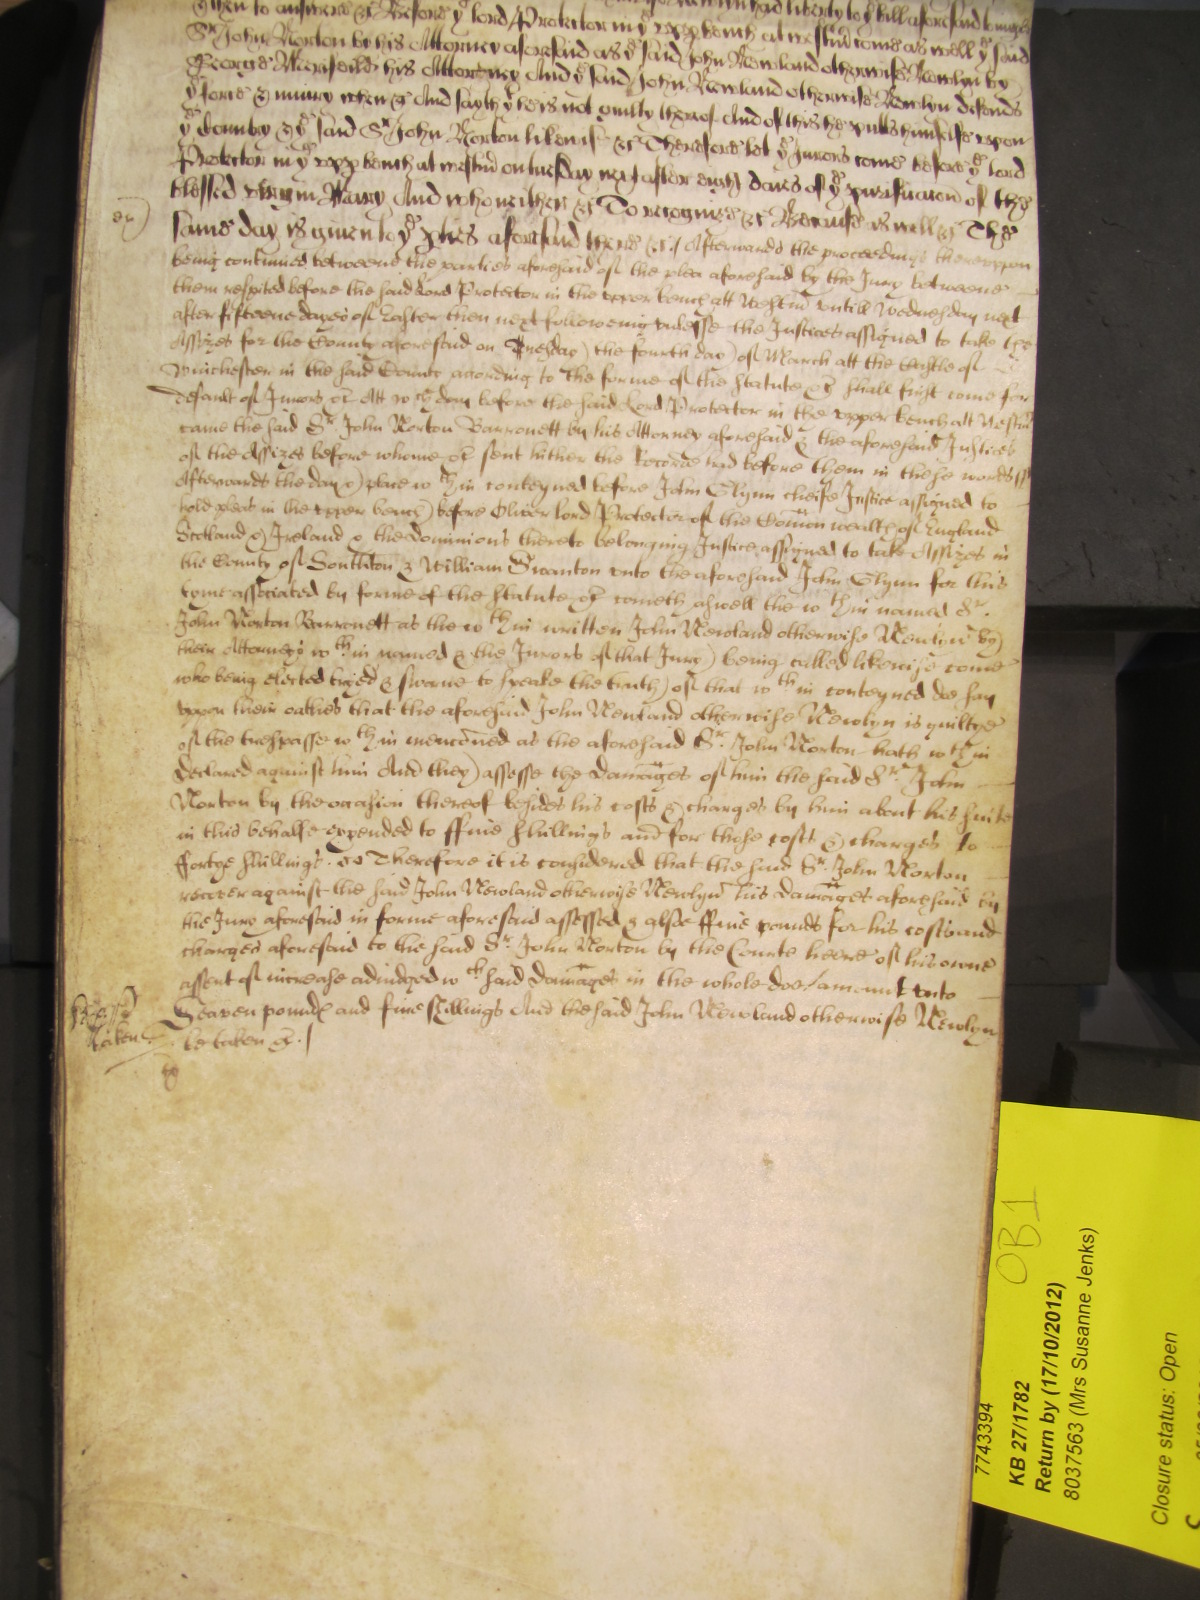 liberty to y^e bill aforesaid
then to answere &c Before y^e lord Protector in y^e upp bench at westm come as well y^e said
S^r John Norton by his Attorney aforesaid as y^e said John Newland otherwise Newlyn by
George his Attorney And y^e said John Newland otherwise Newlyn defends
y^e force & iniury when &c And sayth y^t he is not guilty thereof And of this he putts himselfe upon
y^e Country & y^e said S^r John Norton likewise &c Therefore let y^e Jurors come before y^e lord
Protector in y^e upp bench at westm on tuesday next after eight daies of y^e purificacon of the
blessed virgin Mary And who neither &c To recognise &c Because as well &c The
same day is given to y^e pties aforesaid there &c / Afterwards the proceedings thereuppon
being continued betweene the parties aforesaid of the plea aforesaid by the Jury betweene
them respited before the said Lord Protector in the upper bench att Westm untill Wednesday next
after fifteene dayes of Easter then next followeing unlesse the Justices assigned to take the
Assizes for the County aforesaid on Tuesday the fourth day of March att the Castle of
Winchester in the said County according to the forme of the Statute &c shall first come for
default of Jurors &c Att w^ch day before the said Lord Protector in the upper bench att Westm
came the said S^r. John Norton Barronett by his Attorney aforesaid & the aforesaid Justices
of the Assizes before whome &c sent hither the Recorde had before them in these words ss
Afterwards the day & place w^thin conteyned before John Glynn cheife Justice assigned to
hold pleas in the upper bench before Oliver lord Protector of the Comon wealth of England
Scotland & Ireland & the dominions thereto belonging Justice assigned to take Assizes in
the County of Southton & William Swanton unto the aforesaid John Glynn for this
tyme associated by forme of the statute &c cometh aswell the w^thin named S^r.
John Norton Barronett as the w^thin written John Newland otherwise Newlin by
their Attorneys w^thin named & the Jurors of that Jury being called likewise come
who being elected tryed & sworne to speake the truth of that w^thin conteyned doe say
uppon their oathes that the aforesaid John Newland otherwise Newlyn is guiltye
of the trespasse w^thin menconed as the aforesaid S^r. John Norton hath w^thin
declared against him And they assesse the Damages of him the said S^r. John
Norton by the occasion thereof besides his costs & charges by him about his suite
in this behalfe expended to ffive shillings and for those costs & charges to
ffortye shillings. Therefore it is considered that the said S^r. John Norton
recover against the said John Newland otherwise Newlyn his Damages aforesaid by
the Jury aforesaid in forme aforesaid assessed & alsoe ffive pounds for his costs and
charges aforesaid to the said S^r. John Norton by the Courte heere of his owne
assent of increase adiudged w^ch said Damages in the whole doe amount unto
Seaven pounds and five shillings And the said John Newland otherwise Newlyn
taken
be taken &c. /
OB1
7743394
KB 27/1782
Return by (17/10/2012)
8037563 (Mrs Susanne Jenks)
Closure status: Open